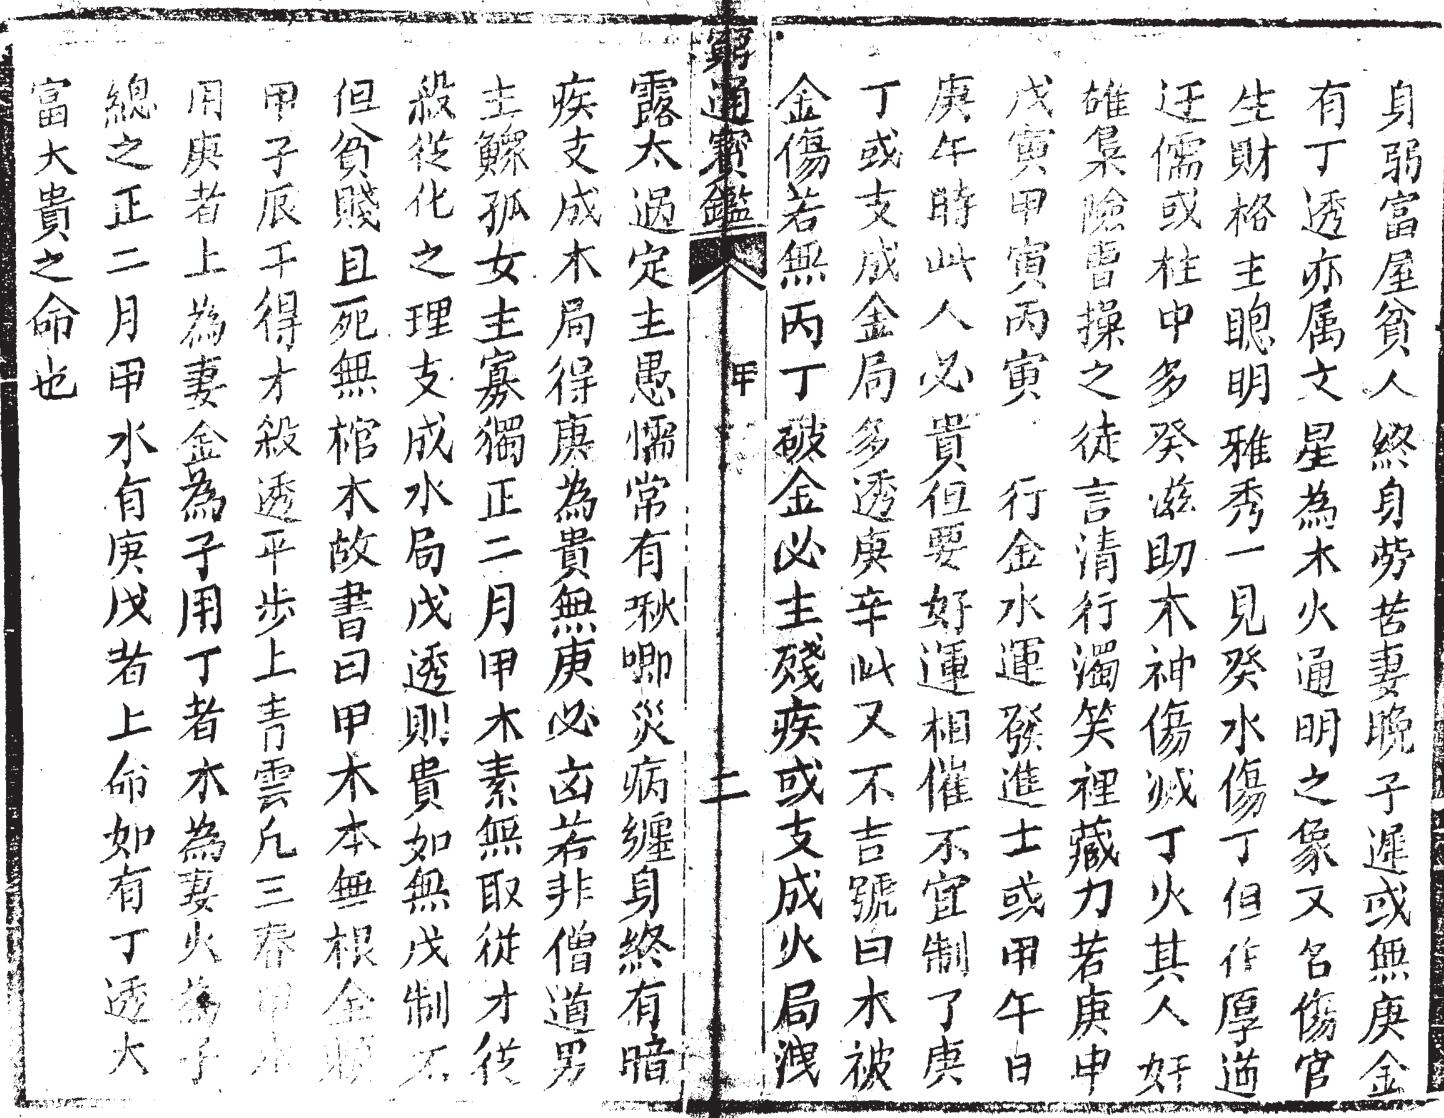 身弱富屋貧人終身勞苦妻晚子遲或無庚金
有丁透亦属文星為木火通明之象又名傷官
生財格主聰明雅秀一見癸水傷丁但作厚道
迂儒或柱中多癸滋助木神傷滅丁火其人奸
雄梟險曹操之徒言清行濁笑裡藏刀若庚申
戊寅甲寅丙寅　行金水運發進士或甲午日
庚午時此人必貴但要好運相催不宜制了庚
丁或支成金局多透庚辛此又不吉號曰木被
金傷若無丙丁破金必主殘疾或支成火局洩
窮通寶鑑　甲　二
露太過定主愚懦常有啾唧災病纏身終有暗
疾支成木局得庚為貴無庚必凶若非僧道男
主鰥孤女主寡獨正二月甲木素無取從才從
殺從化之理支成水局戊透則貴如無戊制不
但貧賤且死無棺木故書曰甲木本無根金賴
甲子辰干得才殺透平步上青雲凡三春甲木
用庚者上為妻金為子用丁者木為妻火為子
總之正二月甲木有庚戊者上命如有丁透大
富大貴之命也